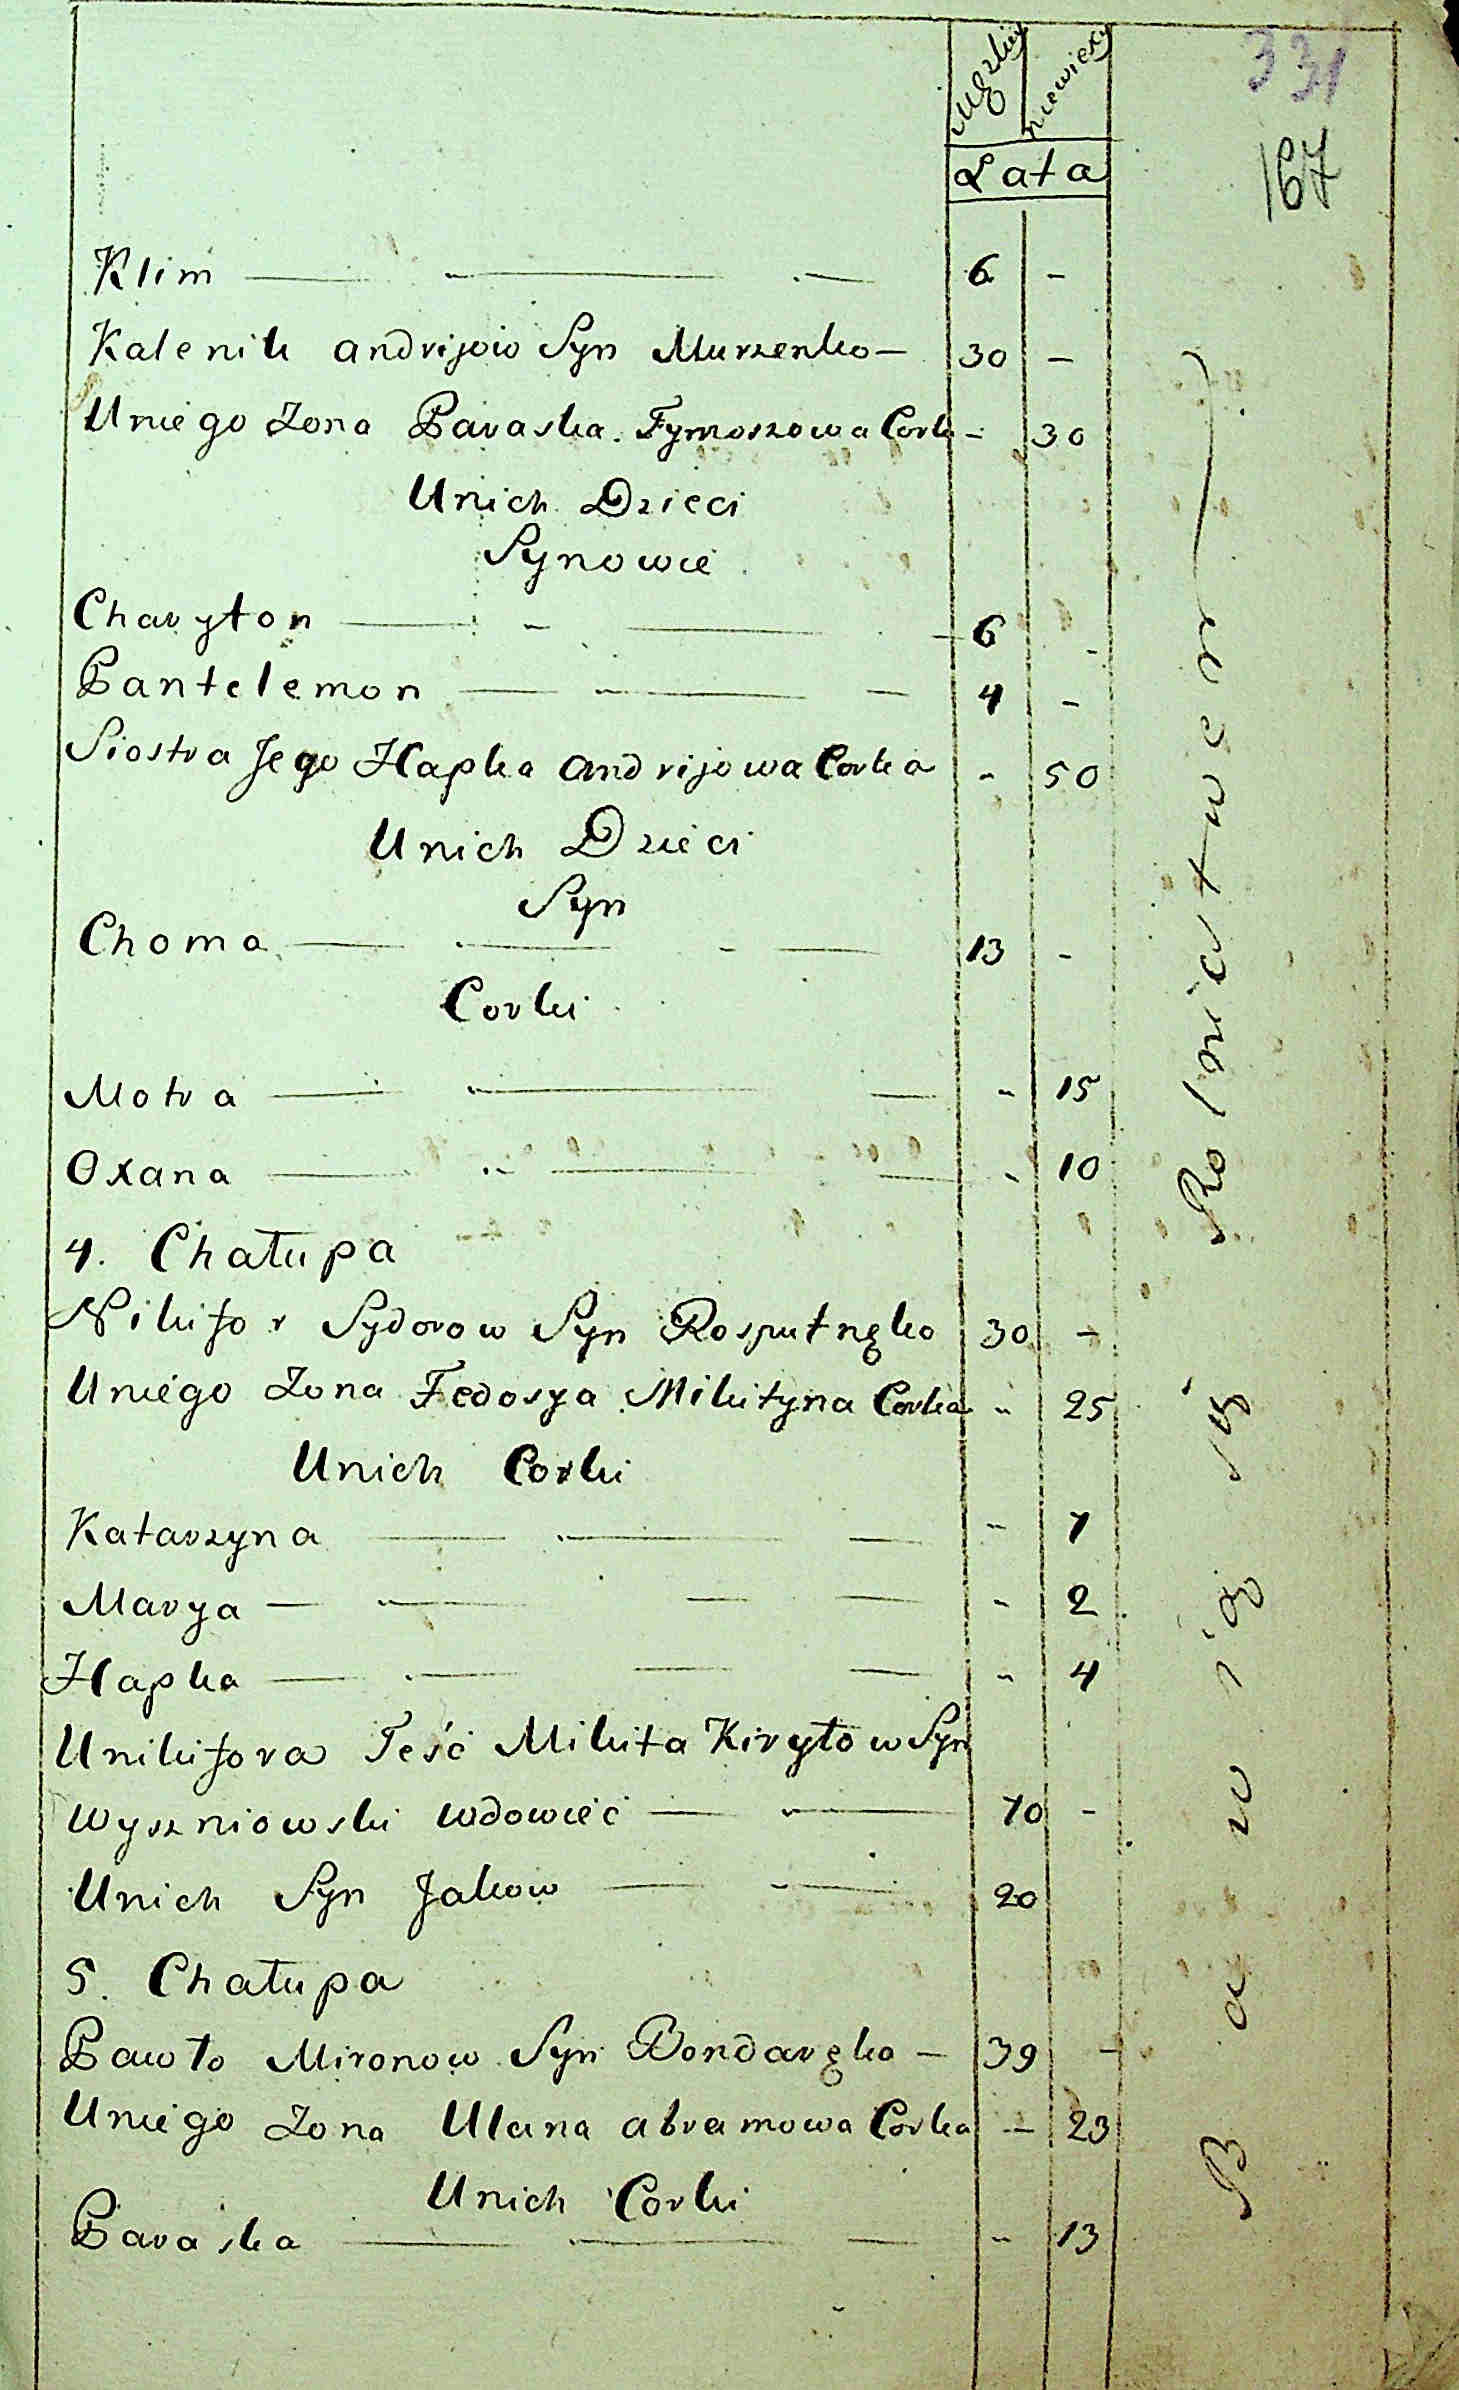 331
167
Męzkiey niewiesy
Lata
Klim — 6 -
Kalenik andrijow Syn Murzenko — 30 -
Uniego Zona Paraska Tymoszowa Corka - 30
Unich Dzieci
Synowie
Charyton — 6 -
Pantelemon — 4 -
Siostra Jego Hapka andrijowa Corka - 50
Unich Dzieci
Syn
Choma — 13 -
Corki
Motra — - 15
Oxana — - 10
4. Chałupa
Nikifor Sydorow Syn Rosputnęko 30 -
Uniego Zona Fedosya Mikityna Corka - 25
Unich Corki
Katarzyna — - 7
Marya — - 2
Hapka — - 4
Unikifora Teść Mikita Kiryłow Syn
Wyszniowski wdowiec — 70 -
Unich Syn Jakow — 20
5. Chałupa
Pawło Mironow Syn Bondaręko — 39 -
Uniego Zona Ulana abramowa Corka - 23
Unich Corki
Paraska — - 13
Bawią się Rolnictwem